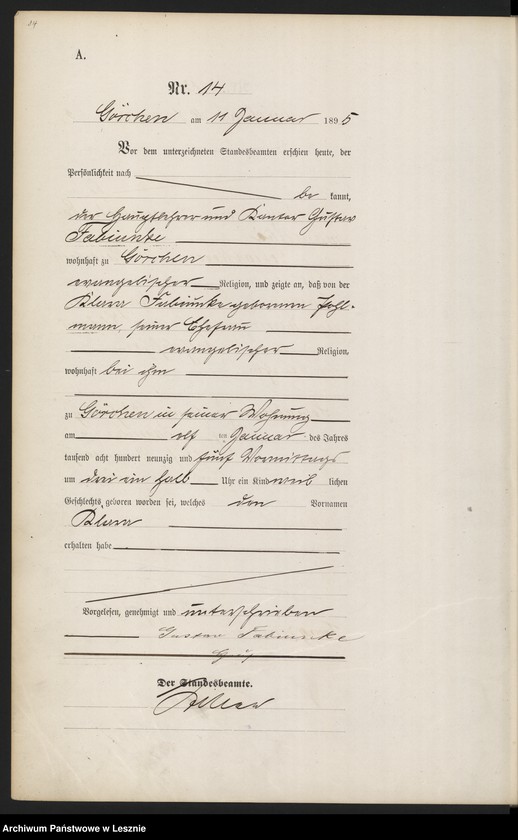 14
A.
Nr. 14
Görchen am 11 Januar 1895
Vor dem unterzeichneten Standesbeamten erschien heute, der
Persönlichkeit nach
be kannt,
der Hauptlehrer und Kantor Gustav
Fabiunke
wohnhaft zu Görchen
evangelischer Religion, und zeigte an, daß von der
Klara Fabiunke geborenen Pohl-
mann, seiner Ehefrau
evangelischer Religion,
wohnhaft bei ihm
zu Görchen in seiner Wohnung
am elf ten Januar des Jahres
tausend acht hundert neunzig und fünf Vormittags
um drei ein halb Uhr ein Kind weib lichen
Geschlechts geboren worden sei, welches den Vornamen
Klara
erhalten habe
Vorgelesen, genehmigt und unterschrieben
Gustav Fabiunke
Der Standesbeamte.
Archiwum Państwowe w Lesznie